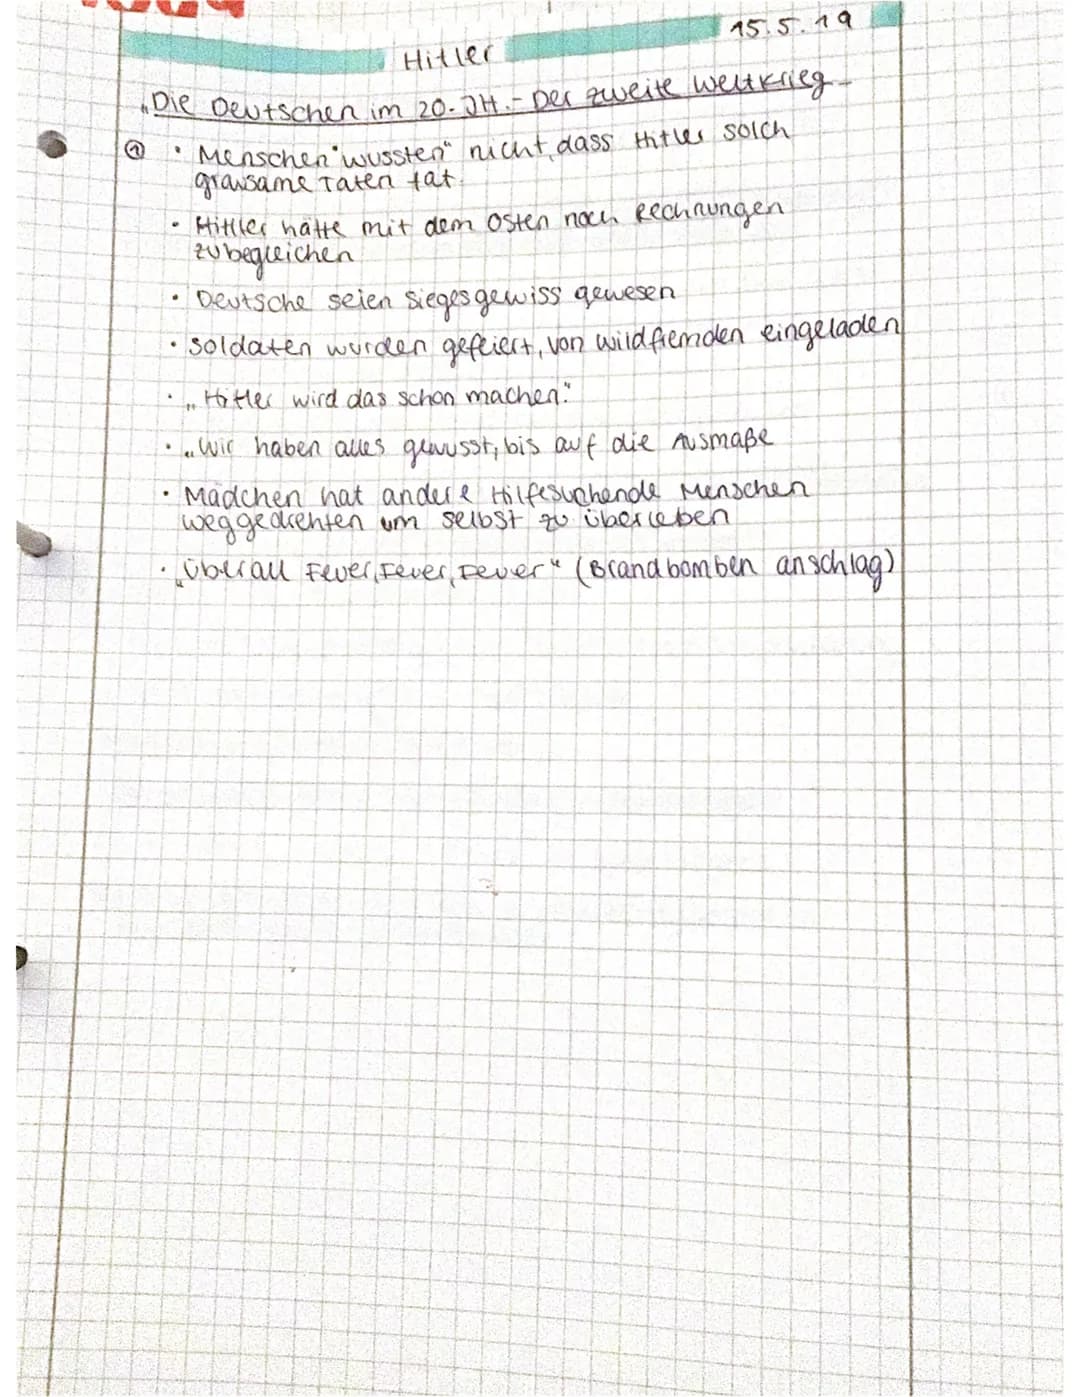 15.5.19
Hitler
„Die Deutschen im 20. JH. - Der zweite Weltkrieg
① • Menschen "wussten" nicht, dass Hitler solch
grausame Taten tat.
• Hittler hätte mit dem Osten noch Rechnungen
zubegleichen
• Deutsche seien siegesgewiss gewesen
• Soldaten wurden gefeiert, von wildfremden eingeladen
• „Hitler wird das schon machen."
• „Wir haben alles gewusst, bis auf die Ausmaße
• Mädchen hat andere Hilfesuchende Menschen
weggedrehten um selbst zu überleben
• „Überall Feuer, Feuer, Feuer" (Brandbomben anschlag)